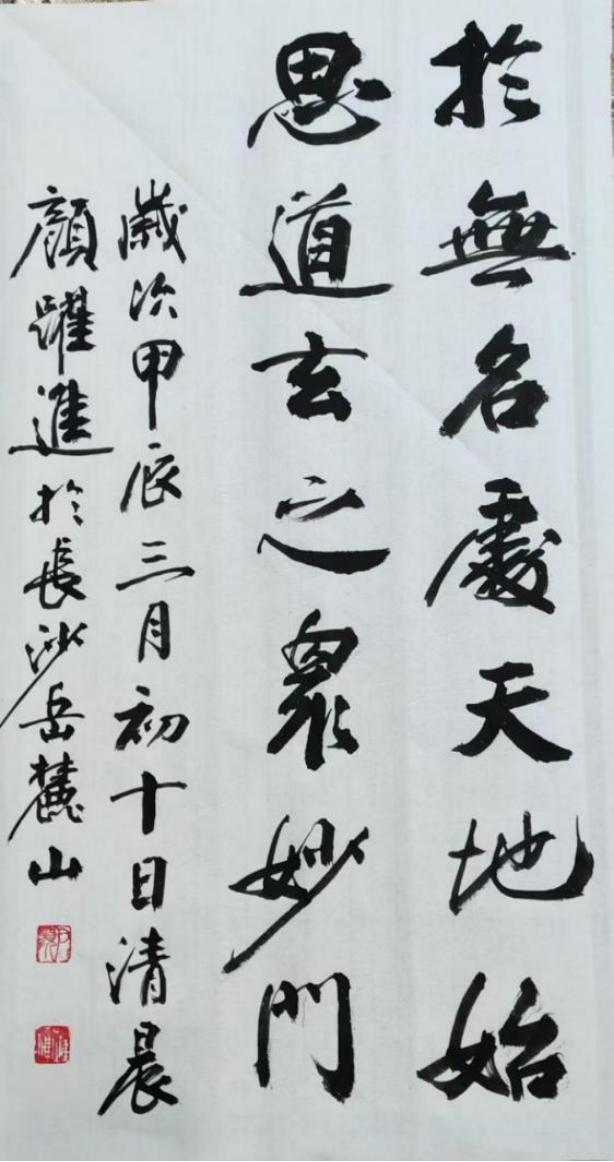 於無名處天地始
思道玄之衆妙門
歲次甲辰三月初十日清晨
顏躍進於長沙岳麓山